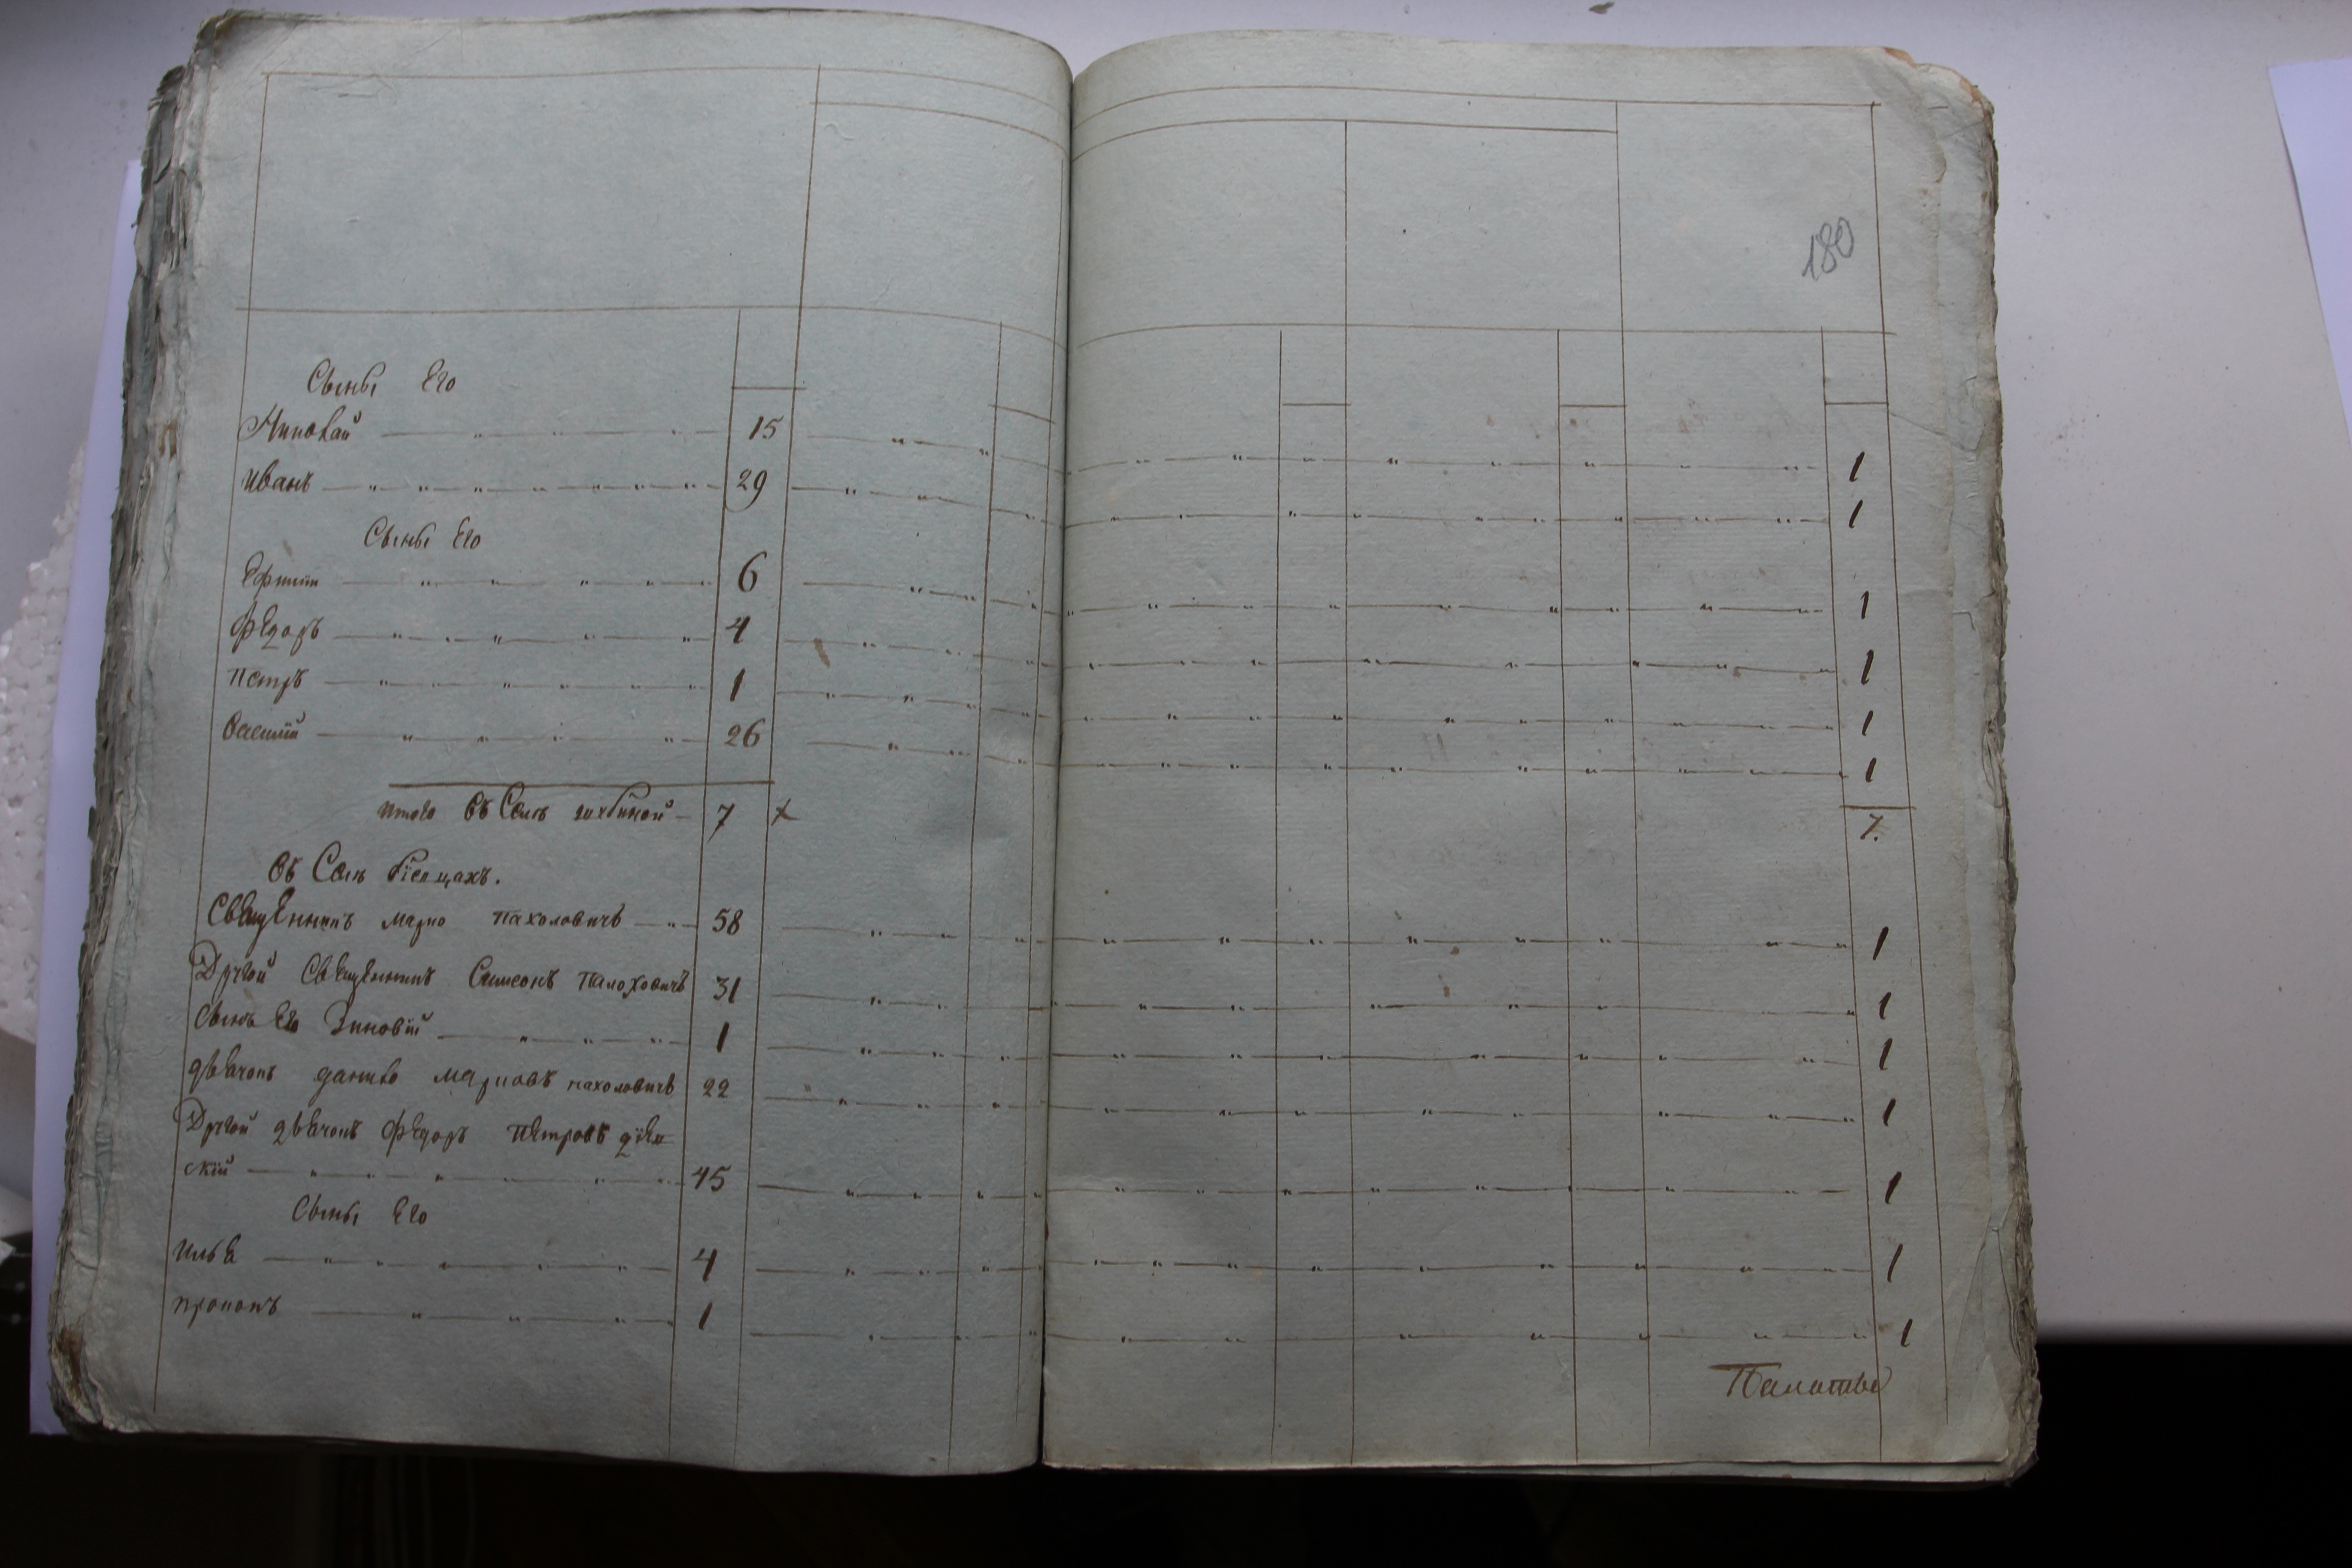 180
Сыны Его
Николай 15 1
Иванъ 29 1
Сыны Его
Ефимъ 6 1
Федоръ 4 1
Петръ 1 1
Василій 26 1
итого Въ Селѣ 7 x 7.
Въ Селѣ
Священникъ Марко Пахоловичъ 58 1
Другой Священникъ Симеонъ 31 1
Сынъ Его Зиновій 1 1
дьячокъ данило Марковъ пахоловичъ 22 1
Другой дьячокъ Федоръ Петровъ
скій 45 1
Сыны Его
Илья 4 1
прокопъ 1 1